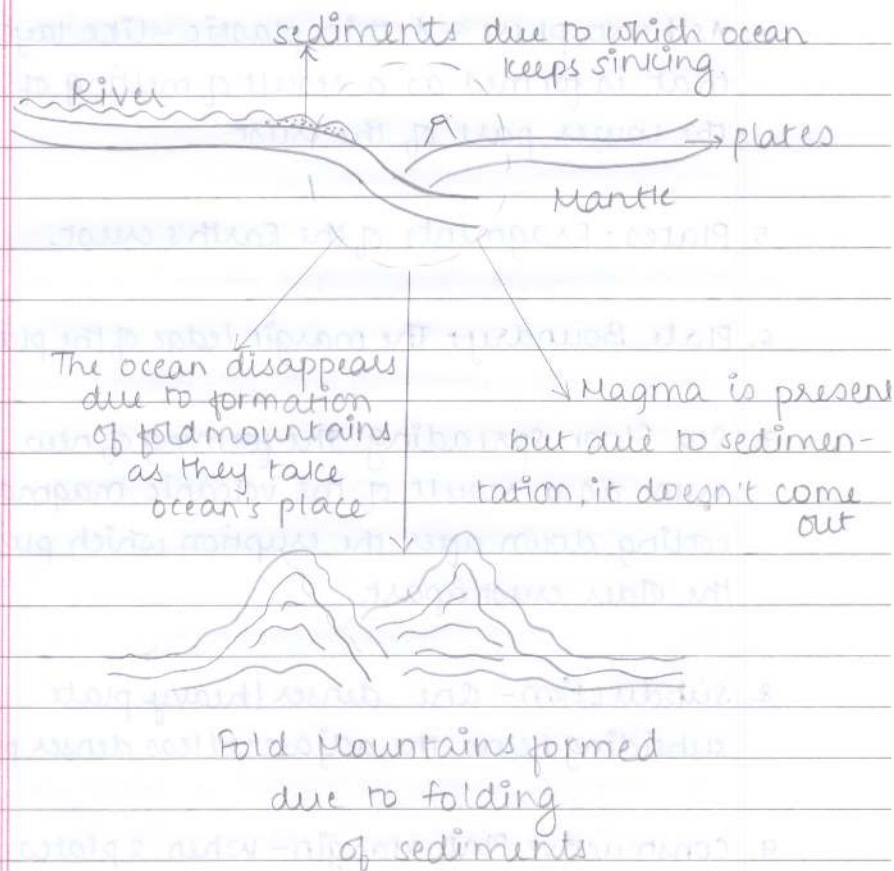 sediments due to which ocean
keeps sinking
River
plates
Mantle
The ocean disappears
due to formation
of fold mountains
as they take
ocean's place
Magma is present
but due to sedimen-
tation, it doesn't come
out
Fold Mountains formed
due to folding
of sediments